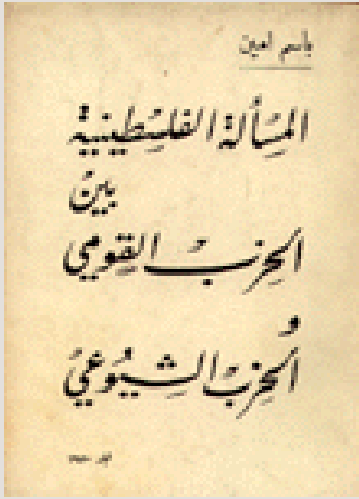 باسم أمين
المسألة الفلسطينية
بين
الحزب القومي
و
الحزب الشيوعي